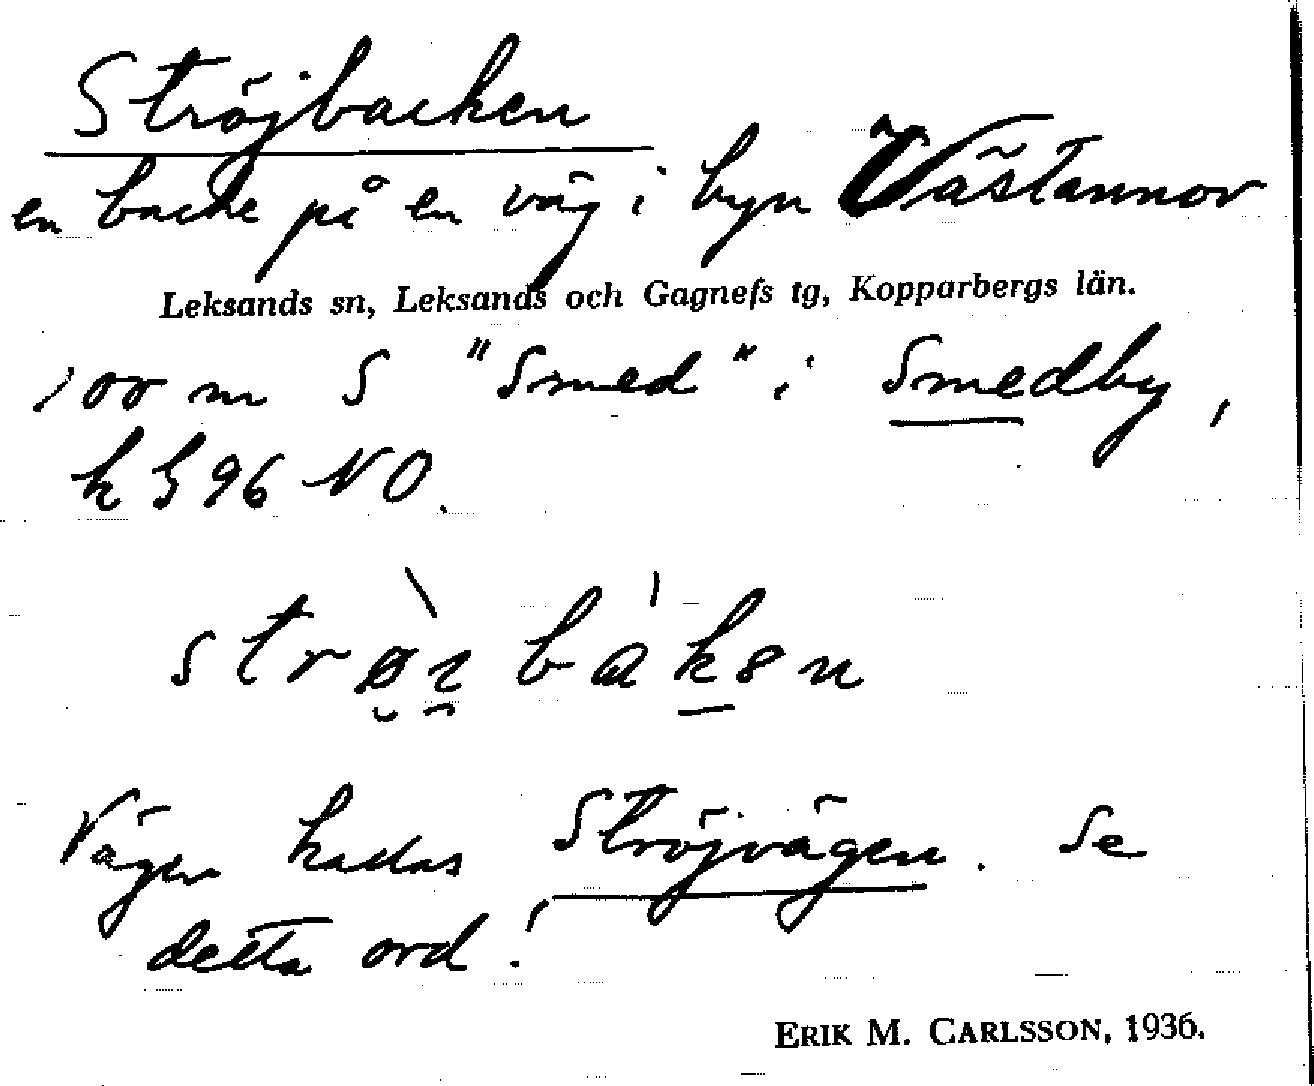 Ströjbacken
en backe på en väg i byn Västannor
Leksands sn, Leksands och Gagnefs tg, Kopparbergs län.
100 m S "Smed" i Smedby,
k 96 NO.
Vägen kallas Ströjvägen. Se
detta ord!
ERIK M. CARLSSON, 1936.